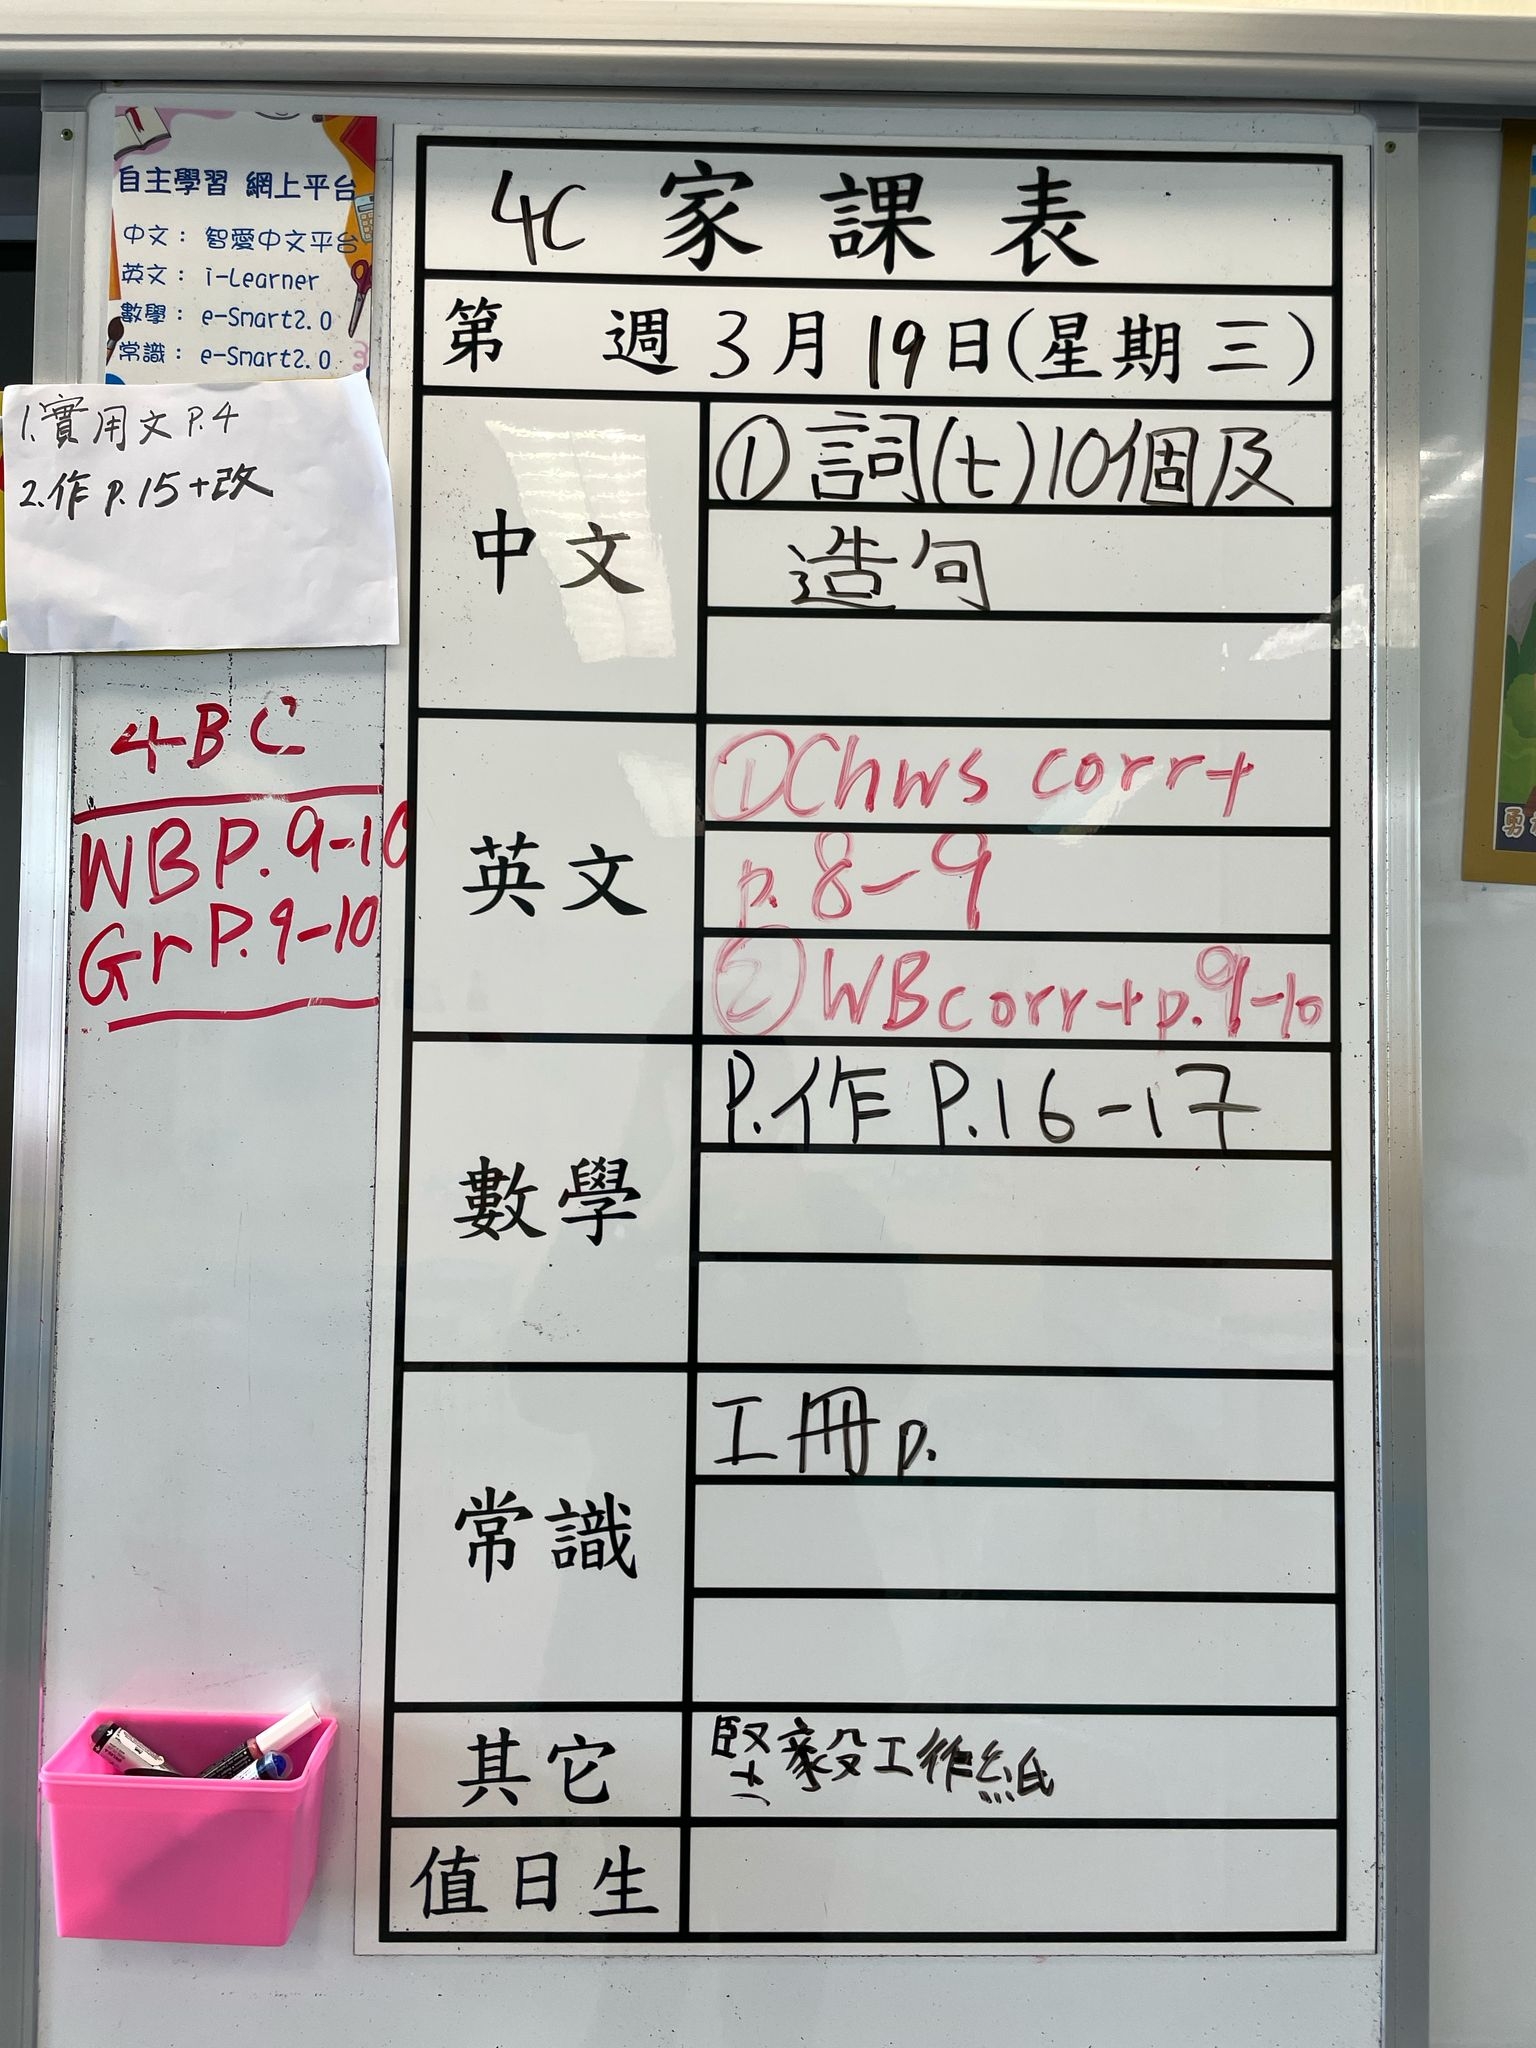 自主學習 網上平台
中文： 智愛中文平台
英文： i-Learner
數學： e-Smart2.0
常識： e-Smart2.0
1.實用文 P.4
2.作 P.15+改
4BC
WB P.9-10
Gr P.9-10
4C 家課表
第 週 3月19日(星期三)
中文
①詞(七)10個及
造句
英文
①Chws corr+
p.8-9
②WBcorr+p.9-10
數學
P.作 P.16-17
常識
工冊p.
其它
堅毅工作紙
值日生